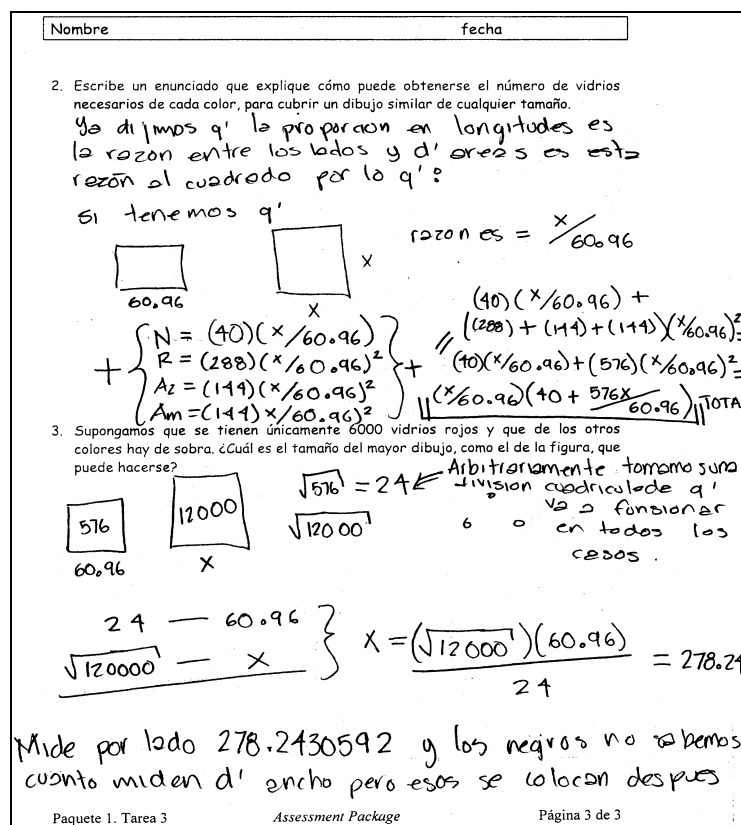 Nombre fecha
2. Escribe un enunciado que explique cómo puede obtenerse el número de vidrios
necesarios de cada color, para cubrir un dibujo similar de cualquier tamaño.
Ya dijimos q' la proporcion en longitudes es
la razon entre los lados y d' areas es esta
razón al cuadrado por lo q':
si tenemos q'
razon es = x/60.96
60.96
x
x
+ { N = (40)(x/60.96)
R = (288)(x/60.96)²
Az = (144)(x/60.96)²
Am = (144) x/60.96)² } +
(40)(x/60.96) +
((288) + (144) + (144))(x/60.96)² =
(40)(x/60.96) + (576)(x/60.96)² =
(x/60.96)(40 + 576x/60.96) TOTA
3. Supongamos que se tienen únicamente 6000 vidrios rojos y que de los otros
colores hay de sobra. ¿Cuál es el tamaño del mayor dibujo, como el de la figura, que
puede hacerse?
576
60.96
12000
x
√576 = 24 ←
√12000
Arbitrariamente tomamos una
división cuadriculada q'
va a funsionar
en todos los
casos.
24 — 60.96
√120000 — x
} x = (√12000)(60.96) / 24 = 278.24
Mide por lado 278.2430592 y los negros no sabemos
cuanto miden d' ancho pero esos se colocan despues
Paquete 1. Tarea 3 Assessment Package Página 3 de 3